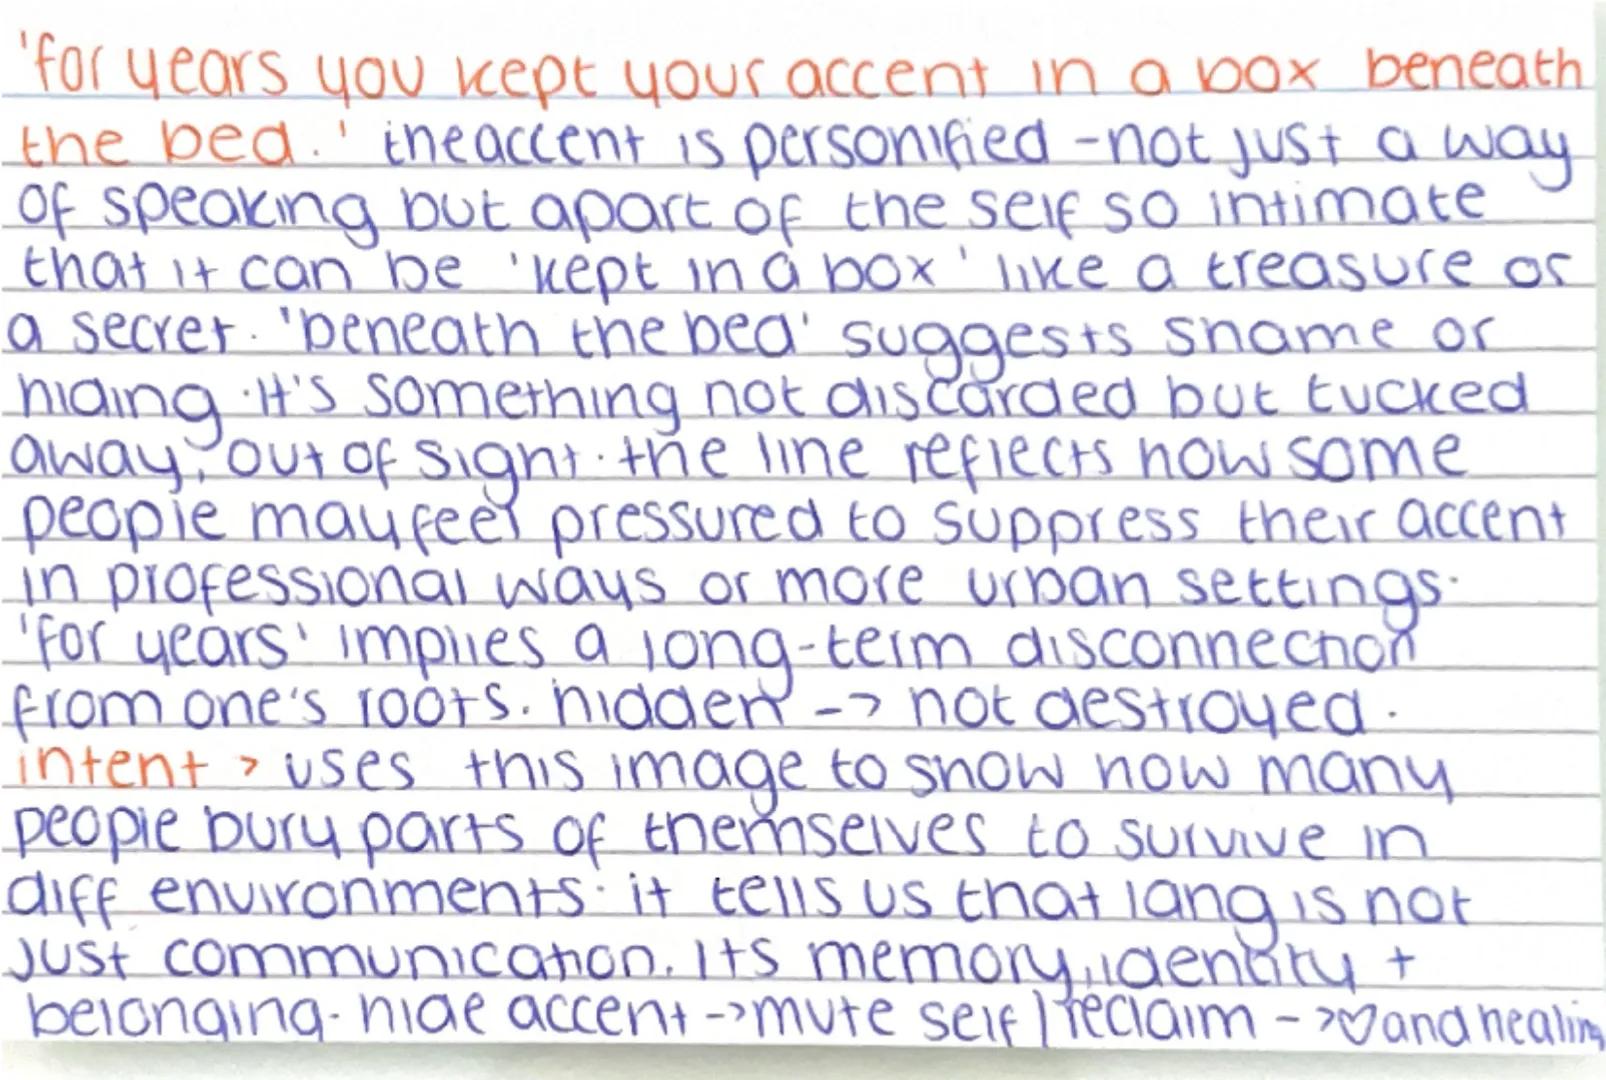 'for years you kept your accent in a box beneath
the bed.' the accent is personified - not just a way
of speaking but apart of the self so intimate
that it can be 'kept in a box' like a treasure or
a secret. 'beneath the bed' suggests shame or
hiding. It's something not discarded but tucked
away, out of sight. the line reflects how some
people may feel pressured to suppress their accent
in professional ways or more urban settings.
'for years' implies a long-term disconnection
from one's roots. hidden --> not destroyed.
intent > uses this image to show how many
people bury parts of themselves to survive in
diff environments. it tells us that lang is not
just communication. Its memory, identity +
belonging. hide accent -> mute self | reclaim -> ♡ and healing